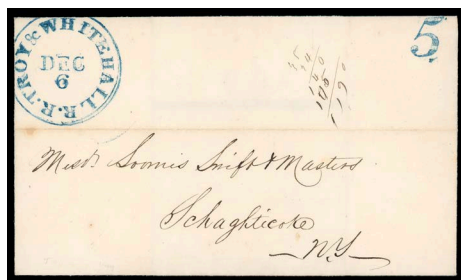 TROY & WHITEHALL R.R.
DEC
6
5
Mess.rs Loomis Swift & Masters
Schaghticoke
NY